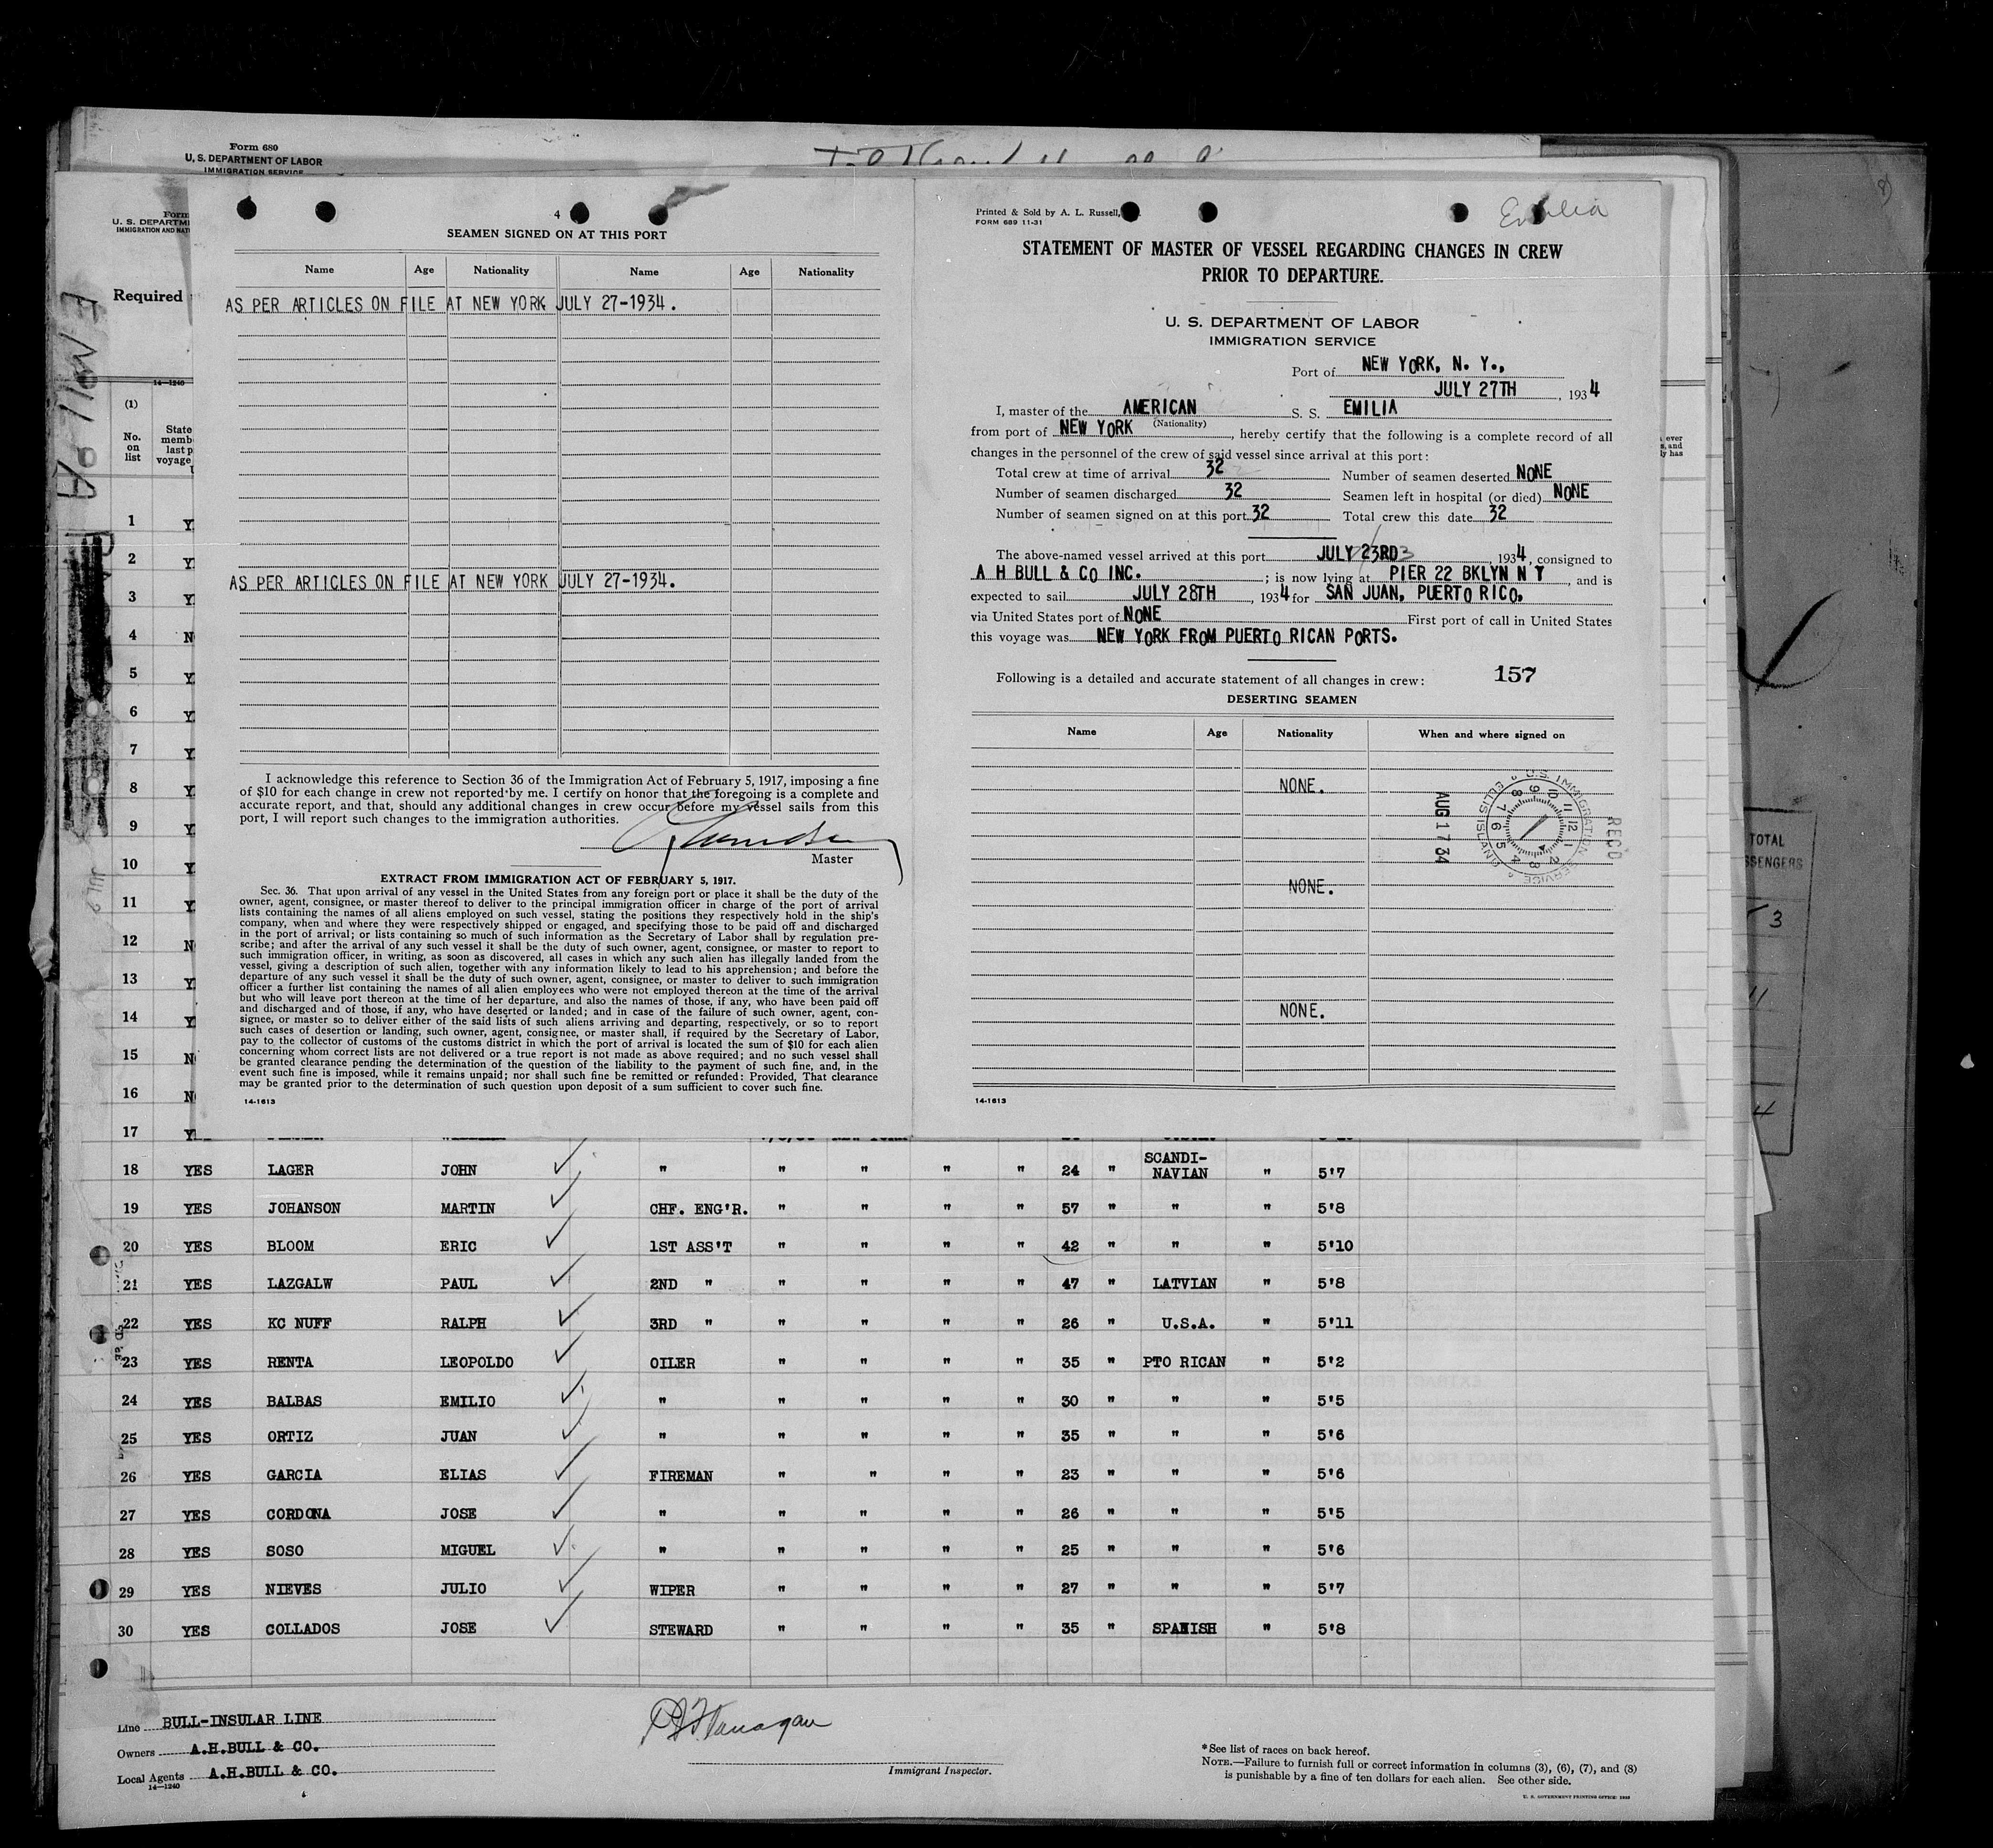 Form 680
U. S. DEPARTMENT OF LABOR
IMMIGRATION SERVICE
Form
U. S. DEPARTM
IMMIGRATION AND NAT
Required
14—1240
(1)
No. on list
State
memb
last p
voyage
4
SEAMEN SIGNED ON AT THIS PORT
Name Age Nationality Name Age Nationality
AS PER ARTICLES ON FILE AT NEW YORK JULY 27-1934.
AS PER ARTICLES ON FILE AT NEW YORK JULY 27-1934.
I acknowledge this reference to Section 36 of the Immigration Act of February 5, 1917, imposing a fine
of $10 for each change in crew not reported by me. I certify on honor that the foregoing is a complete and
accurate report, and that, should any additional changes in crew occur before my vessel sails from this
port, I will report such changes to the immigration authorities.
Master
EXTRACT FROM IMMIGRATION ACT OF FEBRUARY 5, 1917.
Sec. 36. That upon arrival of any vessel in the United States from any foreign port or place it shall be the duty of the
owner, agent, consignee, or master thereof to deliver to the principal immigration officer in charge of the port of arrival
lists containing the names of all aliens employed on such vessel, stating the positions they respectively hold in the ship's
company, when and where they were respectively shipped or engaged, and specifying those to be paid off and discharged
in the port of arrival; or lists containing so much of such information as the Secretary of Labor shall by regulation pre-
scribe; and after the arrival of any such vessel it shall be the duty of such owner, agent, consignee, or master to report to
such immigration officer, in writing, as soon as discovered, all cases in which any such alien has illegally landed from the
vessel, giving a description of such alien, together with any information likely to lead to his apprehension; and before the
departure of any such vessel it shall be the duty of such owner, agent, consignee, or master to deliver to such immigration
officer a further list containing the names of all alien employees who were not employed thereon at the time of the arrival
but who will leave port thereon at the time of her departure, and also the names of those, if any, who have been paid off
and discharged and of those, if any, who have deserted or landed; and in case of the failure of such owner, agent, con-
signee, or master so to deliver either of the said lists of such aliens arriving and departing, respectively, or so to report
such cases of desertion or landing, such owner, agent, consignee, or master shall, if required by the Secretary of Labor,
pay to the collector of customs of the customs district in which the port of arrival is located the sum of $10 for each alien
concerning whom correct lists are not delivered or a true report is not made as above required; and no such vessel shall
be granted clearance pending the determination of the question of the liability to the payment of such fine, and, in the
event such fine is imposed, while it remains unpaid; nor shall such fine be remitted or refunded: Provided, That clearance
may be granted prior to the determination of such question upon deposit of a sum sufficient to cover such fine.
14-1613
Printed & Sold by A. L. Russell,
FORM 689 11-31
Emilia
STATEMENT OF MASTER OF VESSEL REGARDING CHANGES IN CREW
PRIOR TO DEPARTURE.
U. S. DEPARTMENT OF LABOR
IMMIGRATION SERVICE
Port of NEW YORK, N. Y.,
JULY 27TH, 1934
I, master of the AMERICAN S. S. EMILIA
(Nationality)
from port of NEW YORK, hereby certify that the following is a complete record of all
changes in the personnel of the crew of said vessel since arrival at this port:
Total crew at time of arrival 32 Number of seamen deserted NONE
Number of seamen discharged 32 Seamen left in hospital (or died) NONE
Number of seamen signed on at this port 32 Total crew this date 32
The above-named vessel arrived at this port JULY 23RD 3, 1934, consigned to
A H BULL & CO INC. ; is now lying at PIER 22 BKLYN N Y, and is
expected to sail JULY 28TH, 1934 for SAN JUAN, PUERTO RICO,
via United States port of NONE First port of call in United States
this voyage was NEW YORK FROM PUERTO RICAN PORTS.
Following is a detailed and accurate statement of all changes in crew: 157
DESERTING SEAMEN
Name Age Nationality When and where signed on
NONE.
NONE.
NONE.
RECD
U.S. IMMIGRATION SERVICE ELLIS ISLAND
AUG 1 7 34
14-1613
ever
s, and
ly has
TOTAL
SSENGERS
3
11
4
1 Y
2 Y
3 Y
4 N
5 Y
6 Y
7 Y
8 Y
9 Y
10 Y
11 Y
12 N
13 Y
14 Y
15 N
16 N
17 Y
18 YES LAGER JOHN " " " " " 24 " SCANDI-NAVIAN " 5'7
19 YES JOHANSON MARTIN CHF. ENG'R. " " " " 57 " " " 5'8
20 YES BLOOM ERIC 1ST ASS'T " " " " 42 " " " 5'10
21 YES LAZGALW PAUL 2ND " " " " " 47 " LATVIAN " 5'8
22 YES KC NUFF RALPH 3RD " " " " " 26 " U.S.A. " 5'11
23 YES RENTA LEOPOLDO OILER " " " " 35 " PTO RICAN " 5'2
24 YES BALBAS EMILIO " " " " " 30 " " " 5'5
25 YES ORTIZ JUAN " " " " " 35 " " " 5'6
26 YES GARCIA ELIAS FIREMAN " " " " 23 " " " 5'6
27 YES CORDONA JOSE " " " " " 26 " " " 5'5
28 YES SOSO MIGUEL " " " " " 25 " " " 5'6
29 YES NIEVES JULIO WIPER " " " " 27 " " " 5'7
30 YES COLLADOS JOSE STEWARD " " " " 35 " SPANISH " 5'8
Line BULL-INSULAR LINE
Owners A.H.BULL & CO.
Local Agents A.H.BULL & CO.
14—1240
Flanagan
Immigrant Inspector.
*See list of races on back hereof.
NOTE.—Failure to furnish full or correct information in columns (3), (6), (7), and (8)
is punishable by a fine of ten dollars for each alien. See other side.
U. S. GOVERNMENT PRINTING OFFICE: